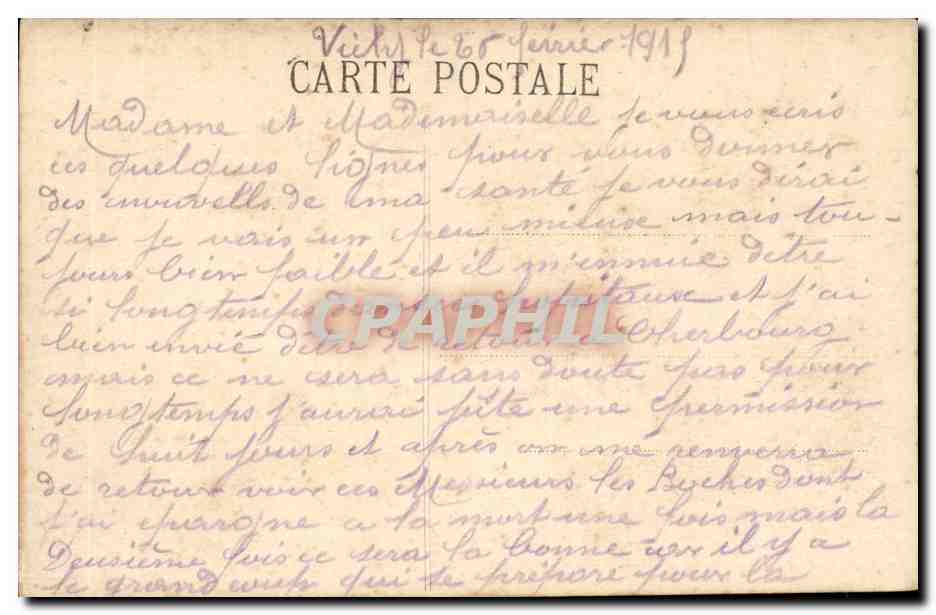 Vichy le 26 février 1915
CARTE POSTALE
Madame et Mademoiselle je vous ecris
ces quelques lignes pour vous donner
des nouvells de ma santé je vous dirai
que je vais un peu mieux mais tou-
jours bien faible et il m'ennuie detre
si longtemps dans les hopitaux et j'ai
bien envié detre de retour a Cherbourg
mais ce ne sera sans doute pas pour
longtemps j'aurai une permission
de huit jours et après on me renverra
de retour voir ces Messieurs les Boches dont
j'ai epargne a la mort une fois mais la
Deusième fois ce sera la bonne car il y a
le grand coup qui se prépare pour la
CPAPHIL